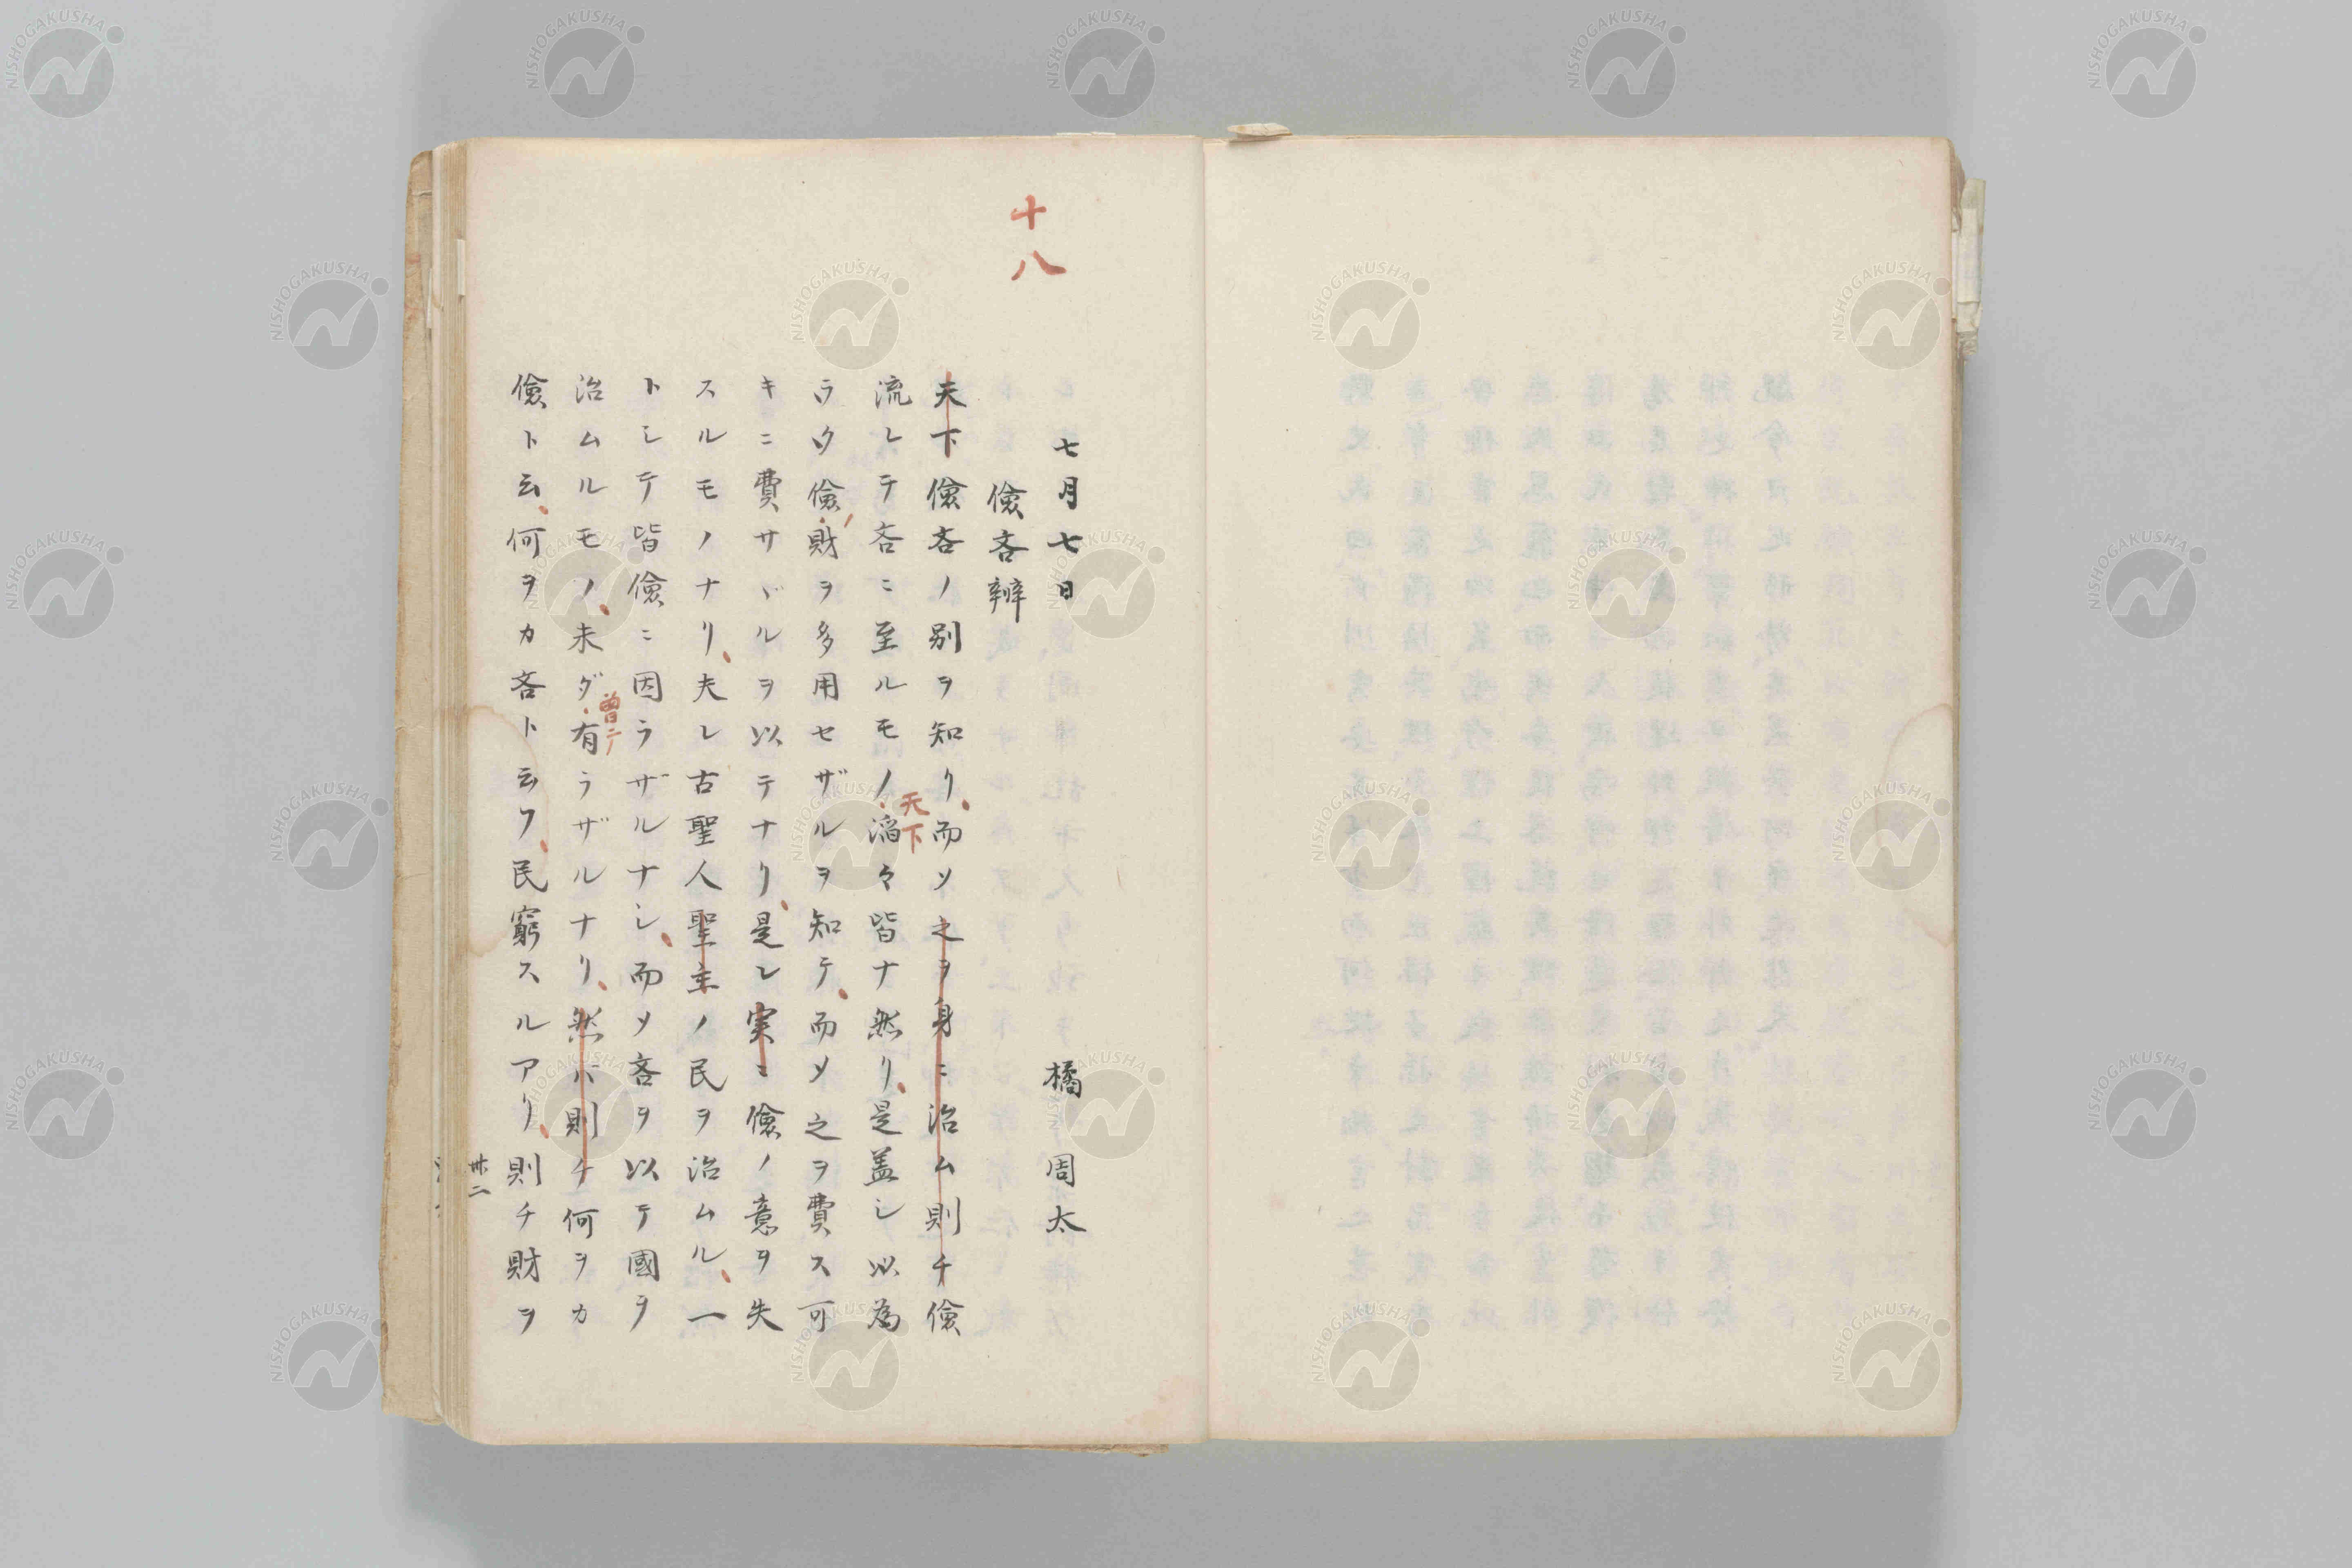 十八
七月七日 橘周太
儉吝辨
天下儉吝ノ別ヲ知リ、而ソ之ヲ身ニ治ム則チ儉
流レテ吝ニ至ルモノ滔々皆ナ然リ、是蓋シ以為
天下
ラク儉、財ヲ多用セザルヲ知テ、而メ之ヲ費ス可
キニ費サヾルヲ以テナリ、是レ実ニ儉ノ意ヲ失
スルモノナリ、夫レ古聖人聖主ノ民ヲ治ムル、一
トシテ皆儉ニ因ラザルナシ、而メ吝ヲ以テ國ヲ
治ムルモノ、未ダ有ラザルナリ、然バ則チ何ヲカ
曽テ
儉ト云、何ヲカ吝ト云フ、民窮スルアリ、則チ財ヲ
卅二
NISHOGAKUSHA